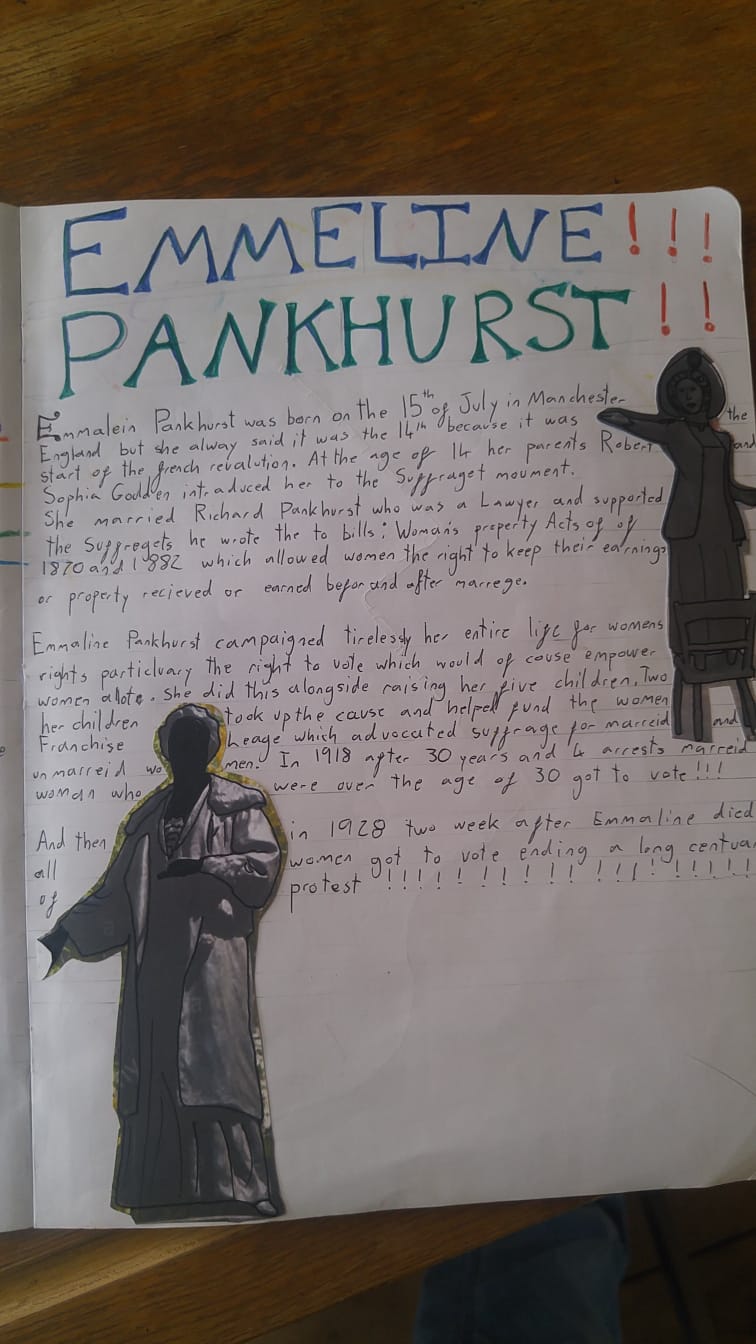 EMMELINE!!!
PANKHURST!!
Emmalein Pankhurst was born on the 15th of July in Manchester
England but she alway said it was the 14th because it was the
start of the french revalution. At the age of 14 her parents Robert and
Sophia Godden intraduced her to the Suffraget moument.
She married Richard Pankhurst who was a Lawyer and supported
the Suffregets he wrote the to bills: Woman's property Acts of of
1870 and 1882 which allowed women the right to keep their earnings
or property recieved or earned befor and after marrege.
Emmaline Pankhurst campaigned tirelessly her entire life for womens
rights particluary the right to vote which would of couse empower
women alote. She did this alongside raising her five children. Two
her children took up the cause and helped fund the women
Franchise leage which advocated suffrage for marreid and
unmarreid women. In 1918 after 30 years and 4 arrests marreid
woman who were over the age of 30 got to vote!!!
And then in 1928 two week after Emmaline died
all women got to vote ending a long centuar
of protest !!!!!!!!!!!!!!!!!!